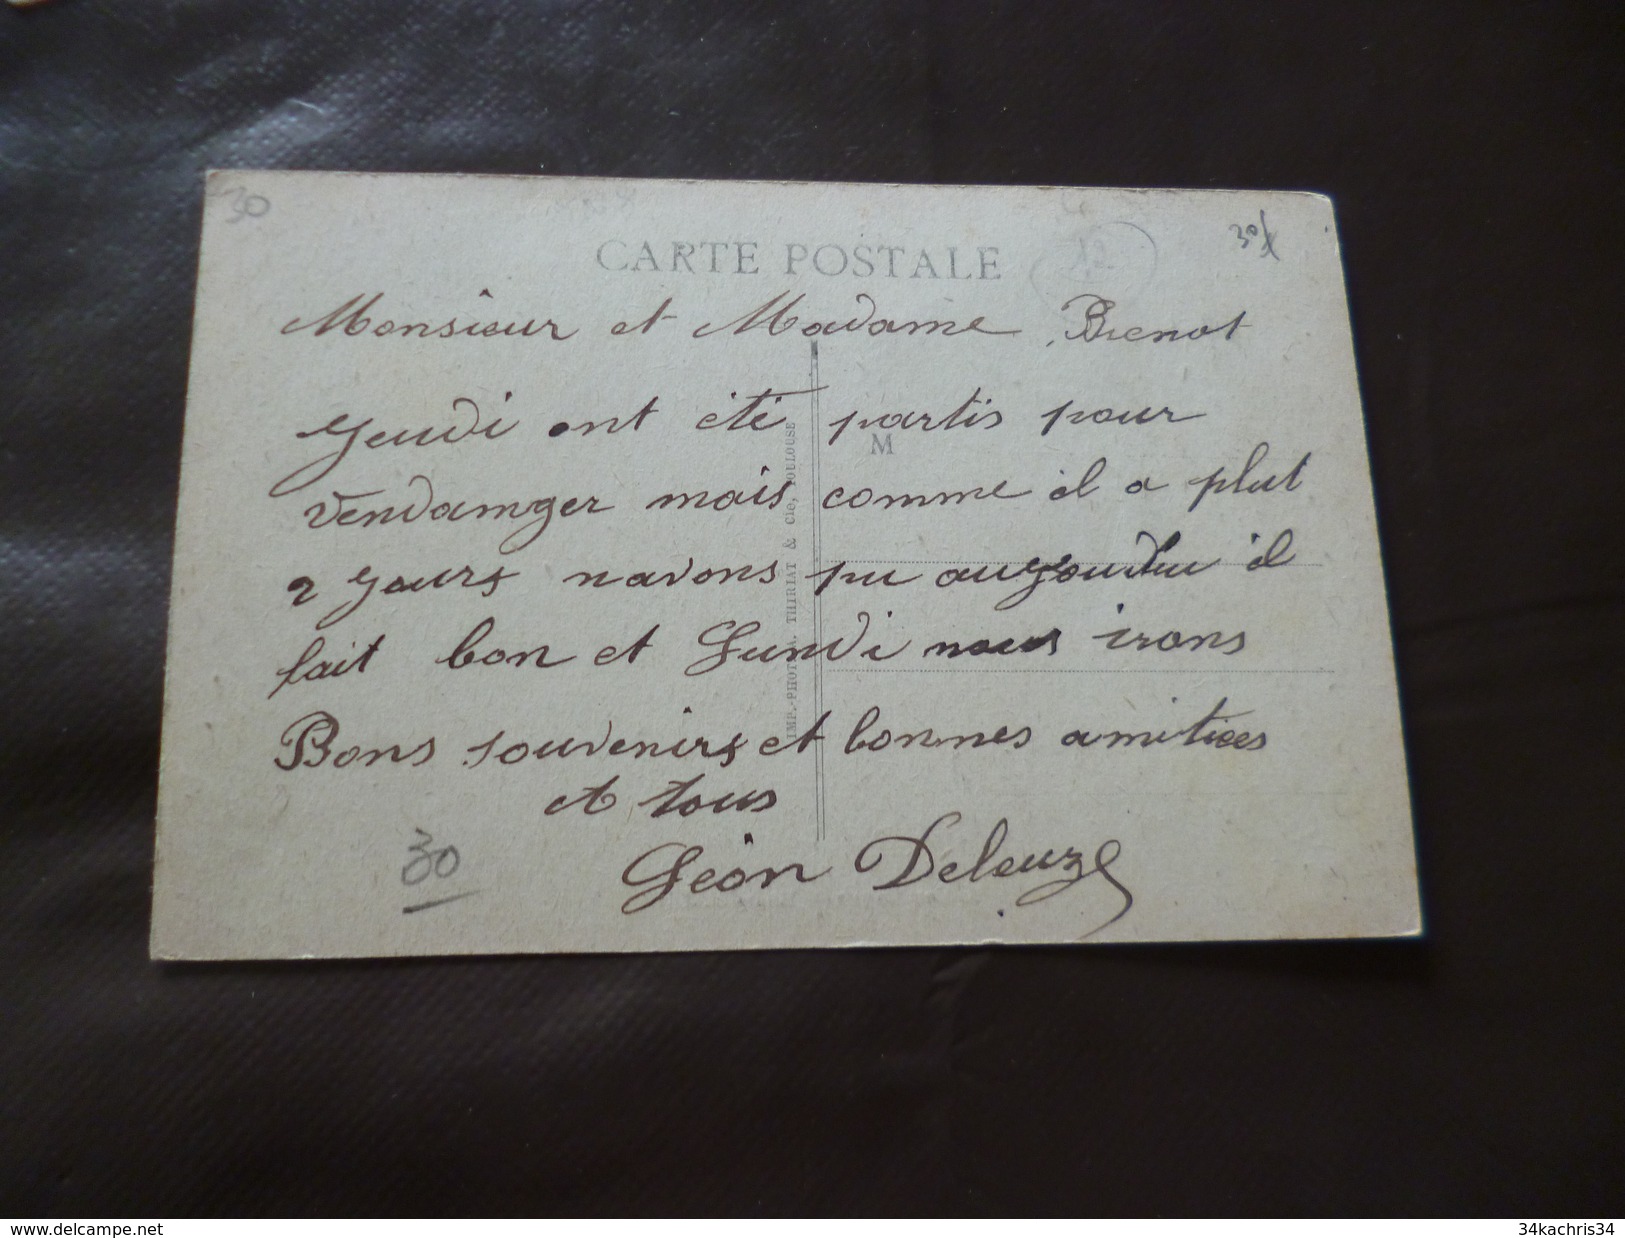 30
30f
12
CARTE POSTALE
Monsieur et Madame Brenot
Jeudi ont été partis pour
M
vendamger mais comme il a plut
2 Jours navons pu aujourdhu il
fait bon et Lundi nous irons
Bons souvenirs et bonnes amitiees
et tous
Léon Deleuze
30
IMP.-PHOT. A. THIRIAT & Cie, TOULOUSE
www.delcampe.net
34kachris34